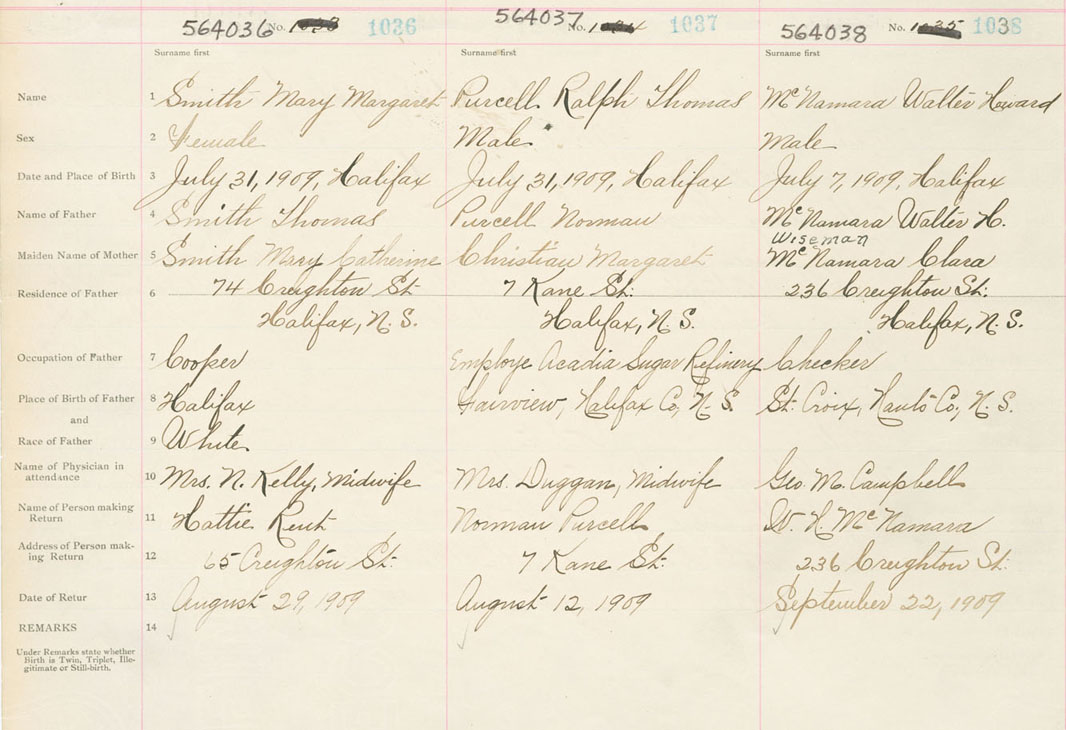 564036 No. 1036 564037 No. 1037 564038 No. 1038
Surname first Surname first Surname first
Name 1 Smith Mary Margaret Purcell Ralph Thomas McNamara Walter Howard
Sex 2 Female Male Male
Date and Place of Birth 3 July 31, 1909, Halifax July 31, 1909, Halifax July 7, 1909, Halifax
Name of Father 4 Smith Thomas Purcell Norman McNamara Walter H.
Wiseman
Maiden Name of Mother 5 Smith Mary Catherine Christian Margaret McNamara Clara
Residence of Father 6 74 Creighton St. 7 Kane St. 236 Creighton St.
Halifax, N.S. Halifax, N.S. Halifax, N.S.
Occupation of Father 7 Cooper Employe Acadia Sugar Refinery Checker
Place of Birth of Father 8 Halifax Fairview, Halifax Co, N.S. St. Croix, Hants Co., N.S.
and
Race of Father 9 White
Name of Physician in
attendance 10 Mrs. N. Kelly, Midwife Mrs. Duggan, Midwife Geo. M. Campbell
Name of Person making
Return 11 Hattie Norman Purcell W. H. McNamara
Address of Person mak-
ing Return 12 65 Creighton St. 7 Kane St. 236 Creighton St.
Date of Retur 13 August 29, 1909 August 12, 1909 September 22, 1909
REMARKS 14
Under Remarks state whether
Birth is Twin, Triplet, Ille-
gitimate or Still-birth.